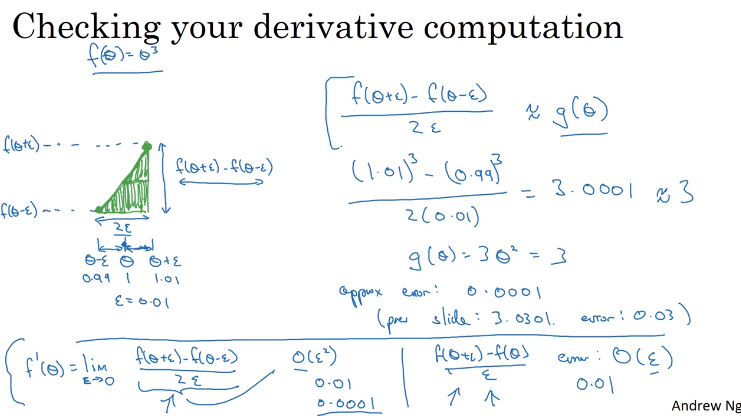 Checking your derivative computation
f(θ) = θ³
f(θ+ε) - f(θ-ε) / 2ε ≈ g(θ)
f(θ+ε)
f(θ+ε) - f(θ-ε)
f(θ-ε)
(1.01)³ - (0.99)³ / 2(0.01) = 3.0001 ≈ 3
2ε
θ-ε θ θ+ε
0.99 1 1.01
ε = 0.01
g(θ) = 3θ² = 3
approx error: 0.0001
(prev slide: 3.0301. error: 0.03)
f'(θ) = lim ε→0 f(θ+ε) - f(θ-ε) / 2ε O(ε²)
0.01
0.0001
f(θ+ε) - f(θ) / ε error: O(ε)
0.01
Andrew Ng